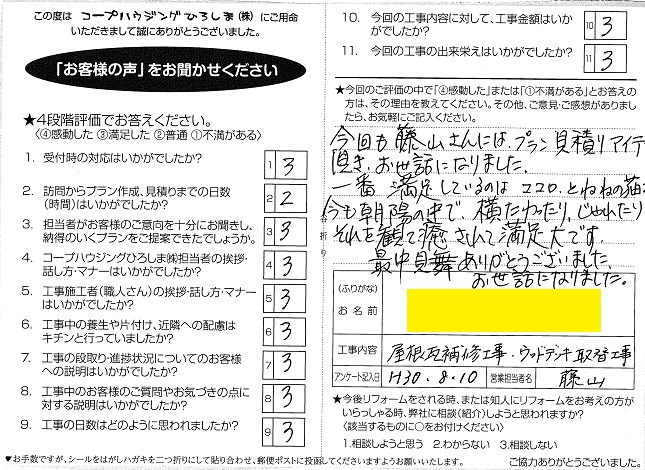 この度は コープハウジングひろしま(株) にご用命
いただきまして誠にありがとうございました。
「お客様の声」をお聞かせください
★4段階評価でお答えください。
〈④感動した ③満足した ②普通 ①不満がある〉
1. 受付時の対応はいかがでしたか?
1 3
2. 訪問からプラン作成、見積りまでの日数
(時間)はいかがでしたか?
2 2
3. 担当者がお客様のご意向を十分にお聞きし、
納得のいくプランをご提案できたでしょうか。
3 3
4. コープハウジングひろしま㈱担当者の挨拶・
話し方・マナーはいかがでしたか?
4 3
5. 工事施工者(職人さん)の挨拶・話し方・マナー
はいかがでしたか?
5 3
6. 工事中の養生や片付け、近隣への配慮は
キチンと行っていましたか?
6 3
7. 工事の段取り・進捗状況についてのお客様
への説明はいかがでしたか?
7 3
8. 工事中のお客様のご質問やお気づきの点に
対する説明はいかがでしたか?
8 3
9. 工事の日数はどのように思われましたか?
9 3
10. 今回の工事内容に対して、工事金額はいか
がでしたか?
10 3
11. 今回の工事の出来栄えはいかがでしたか?
11 3
★今回のご評価の中で「④感動した」または「①不満がある」とお答え
の方は、その理由を教えてください。その他、ご意見・ご感想がありまし
たら、お気軽にご記入ください。
今回も藤山さんには、プラン見積りアイテ
頂き、お世話になりました。
一番 満足しているのは ココロ、とねねの猫
今も朝陽の中で、横たわったり、じゃれたり
それを観て癒されて満足大です。
最中見舞ありがとうございました。
お世話になりました。
(ふりがな)
お名前
工事内容 屋根瓦補修工事・ウッドデッキ取替工事
アンケート記入日 H30.8.10 営業担当者名 藤山
★今後リフォームをされる時、または知人にリフォームをお考えの方が
いらっしゃる時、弊社に相談(紹介)しようと思われますか?
〈該当するものに○をお付けください〉
1.相談しようと思う 2.わからない 3.相談しない
▼お手数ですが、シールをはがしハガキを二つ折りにして貼り合わせ、郵便ポストに投函してくださいますようお願いいたします。
ご協力ありがとうございました。